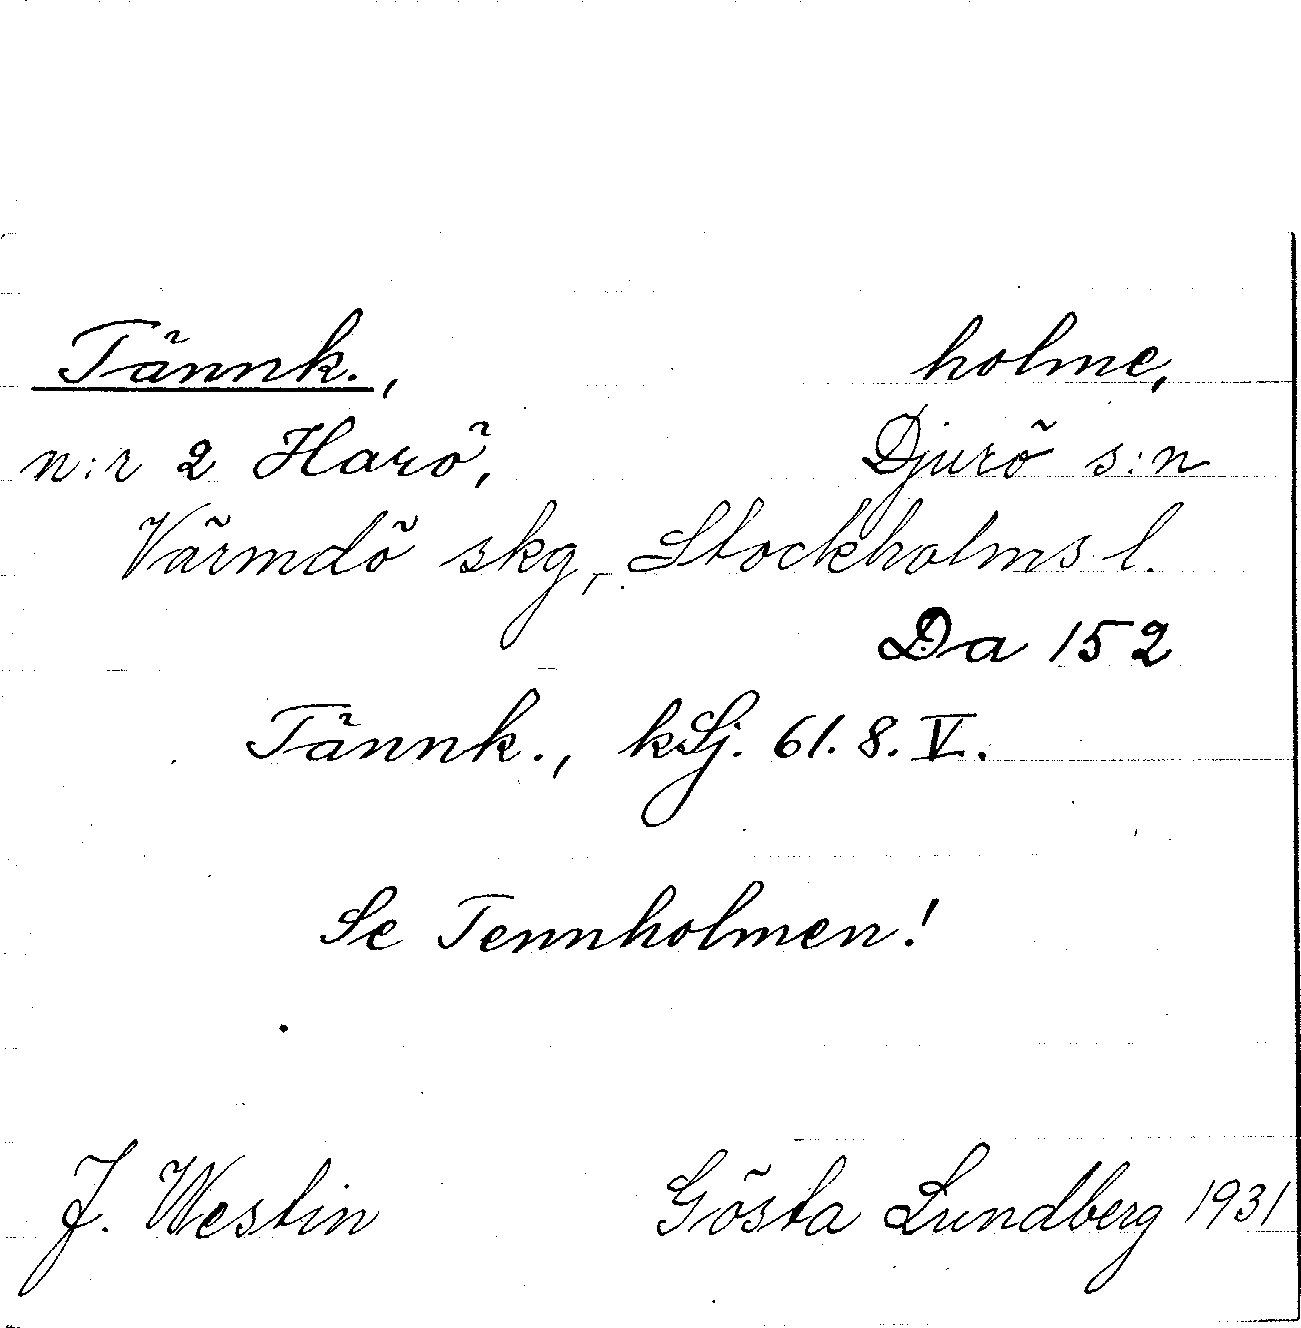 Tännk., holme,
n:r 2 Harö, Djurö s:n
Värmdö skg, Stockholms l.
Da 152
Tännk., kSj. 61. 8. V.
Se Tennholmen!
J. Westin Gösta Lundberg 1931